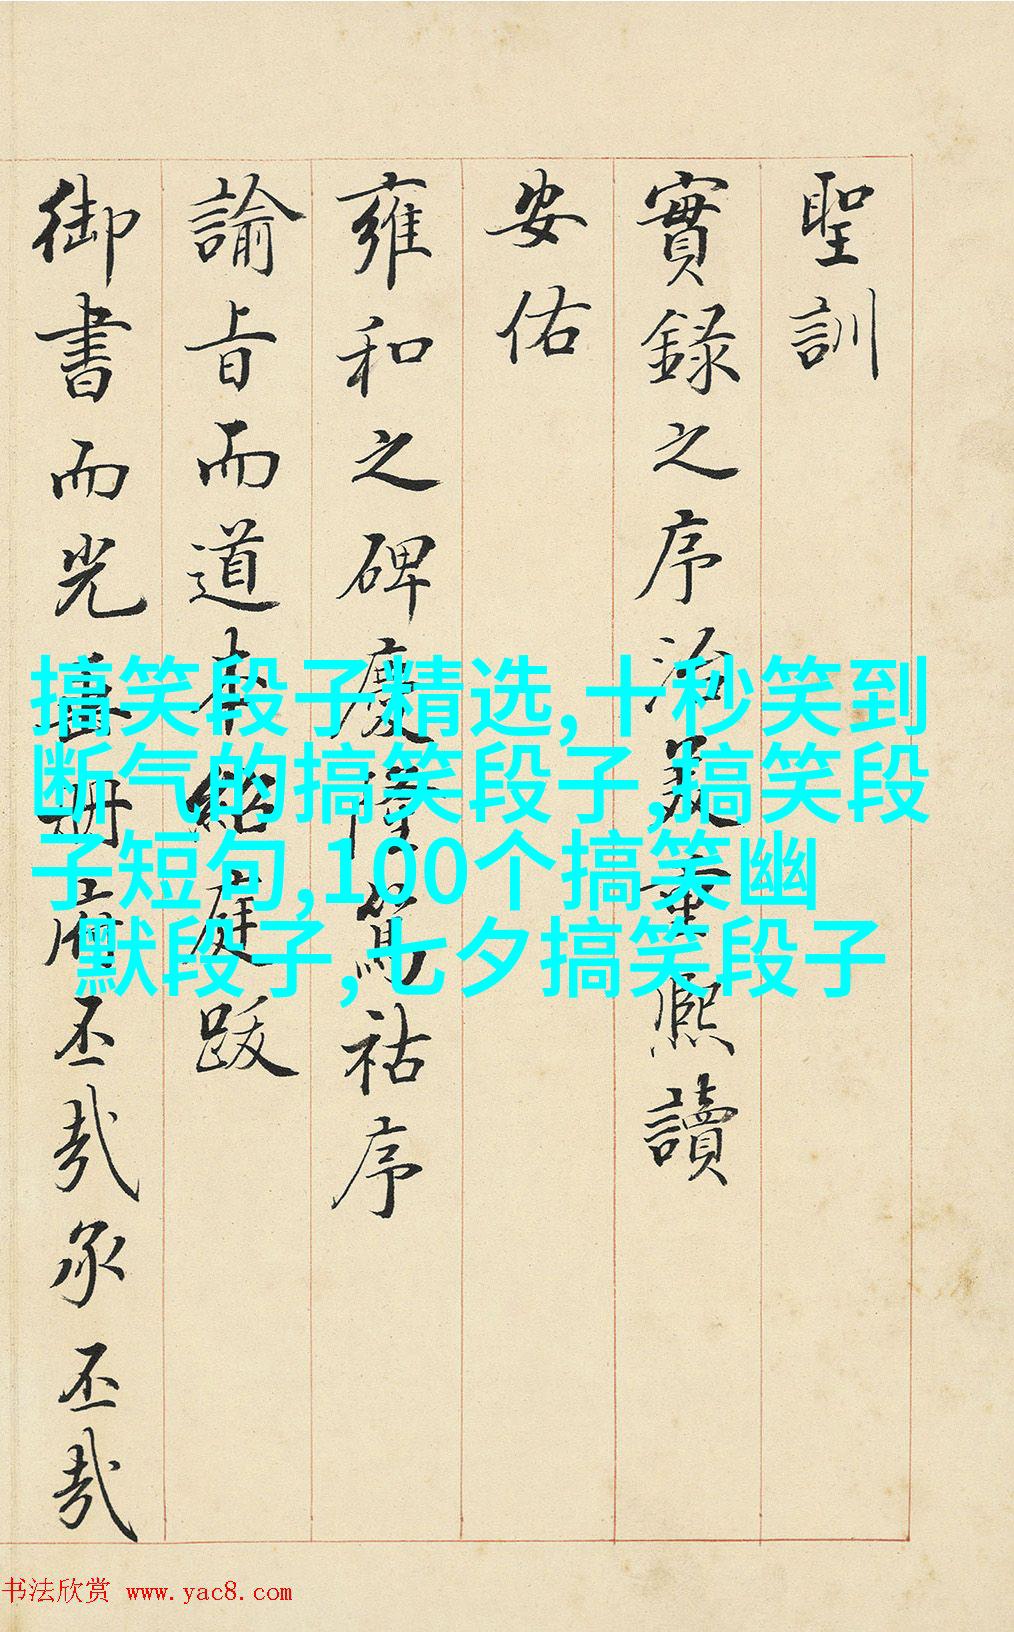 聖訓
實錄之序治美重熙讀
安佑
雍和之碑慶隆篤祜序
諭旨而道本紹庭跋
御書而光冊府丕哉承丕哉
搞笑段子精选,十秒笑到
断气的搞笑段子,搞笑段
子短句,100个搞笑幽
默段子,七夕搞笑段子
书法欣赏 www.yac8.com